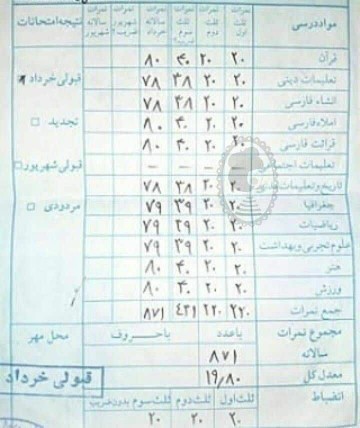 مواد درسی نمرات ثلث اول نمرات ثلث دوم نمرات ثلث سوم نمرات سالانه خرداد نمرات شهریور نمرات سالانه شهریور نتیجه امتحانات
قرآن ۲۰ ۲۰ ۴۰ ۸۰
تعلیمات دینی ۲۰ ۲۰ ۳۸ ۷۸ قبولی خرداد
انشاء فارسی ۲۰ ۲۰ ۳۸ ۷۸
املاء فارسی ۲۰ ۲۰ ۴۰ ۸۰ تجدید
قرائت فارسی ۲۰ ۲۰ ۴۰ ۸۰
تعلیمات اجتماعی – – – – قبولی شهریور
تاریخ و تعلیمات مدنی ۲۰ ۲۰ ۳۸ ۷۸
جغرافیا ۲۰ ۲۰ ۳۹ ۷۹ مردودی
ریاضیات ۲۰ ۲۰ ۳۹ ۷۹
علوم تجربی و بهداشت ۲۰ ۲۰ ۳۹ ۷۹
هنر ۲۰ ۲۰ ۴۰ ۸۰
ورزش ۲۰ ۲۰ ۴۰ ۸۰
جمع نمرات ۲۲۰ ۲۲۰ ۴۳۱ ۸۷۱
مجموع نمرات باعدد باحروف محل مهر
سالانه ۸۷۱
معدل کل ۱۹/۸۰ قبولی خرداد
انضباط ثلث اول ثلث دوم ثلث سوم بدون ضریب
۲۰ ۲۰ ۲۰